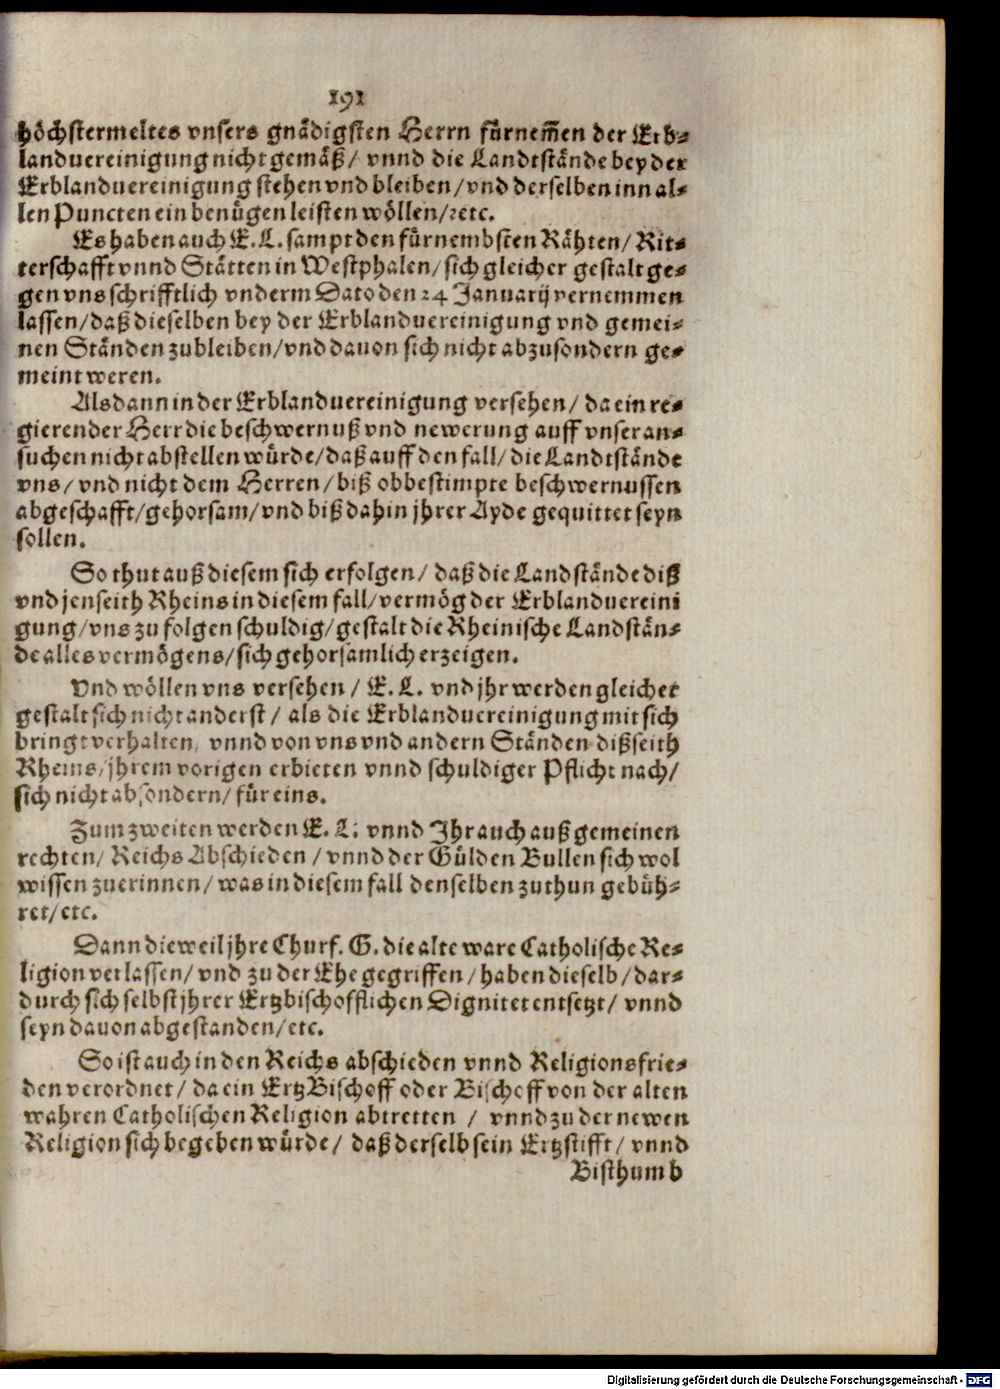 191
höchstermeltes vnsers gnädigsten Herrn fürnem̃en der Erb-
landuereinigung nicht gemäß/ vnnd die Landtstände bey der
Erblanduereinigung stehen vnd bleiben/ vnd derselben inn al-
len Puncten ein benügen leisten wöllen/ ꝛetc.
Es haben auch E. L. sampt den fürnembsten Rähten/ Rit-
terschafft vnnd Stätten in Westphalen/ sich gleicher gestalt ge-
gen vns schrifftlich vnderm Dato den 24 Januarij vernemmen
lassen/ daß dieselben bey der Erblanduereinigung vnd gemei-
nen Ständen zubleiben/ vnd dauon sich nicht abzusondern ge-
meint weren.
Als dann in der Erblanduereinigung versehen/ da ein re-
gierender Herr die beschwernuß vnd newerung auff vnser an-
suchen nicht abstellen würde/ daß auff den fall/ die Landtstände
vns/ vnd nicht dem Herren/ biß obbestimpte beschwernussen
abgeschafft/ gehorsam/ vnd biß dahin jhrer Ayde gequittet seyn
sollen.
So thut auß diesem sich erfolgen/ daß die Landstände diß
vnd jenseith Rheins in diesem fall/ vermög der Erblanduereini
gung/ vns zu folgen schuldig/ gestalt die Rheinische Landstän-
de alles vermögens/ sich gehorsamlich erzeigen.
Vnd wöllen vns versehen/ E. L. vnd jhr werden gleicher
gestalt sich nicht anderst/ als die Erblanduereinigung mit sich
bringt verhalten, vnnd von vns vnd andern Ständen dißseith
Rheins/ jhrem vorigen erbieten vnnd schuldiger Pflicht nach/
sich nicht absondern/ für eins.
Zum zweiten werden E. L. vnnd Jhr auch auß gemeinen
rechten/ Reichs Abschieden/ vnnd der Gülden Bullen sich wol
wissen zuerinnen/ was in diesem fall denselben zuthun gebüh-
ret/ etc.
Dann dieweil jhre Churf. G. die alte ware Catholische Re-
ligion verlassen/ vnd zu der Ehe gegriffen/ haben dieselb/ dar-
durch sich selbst jhrer Ertzbischofflichen Dignitet entsetzt/ vnnd
seyn dauon abgestanden/ etc.
So ist auch in den Reichs abschieden vnnd Religionsfrie-
den verordnet/ da ein ErtzBischoff oder Bischoff von der alten
wahren Catholischen Religion abtretten / vnnd zu der newen
Religion sich begeben würde/ daß derselb sein Ertzstifft/ vnnd
Bisthumb
Digitalisierung gefördert durch die Deutsche Forschungsgemeinschaft - DFG